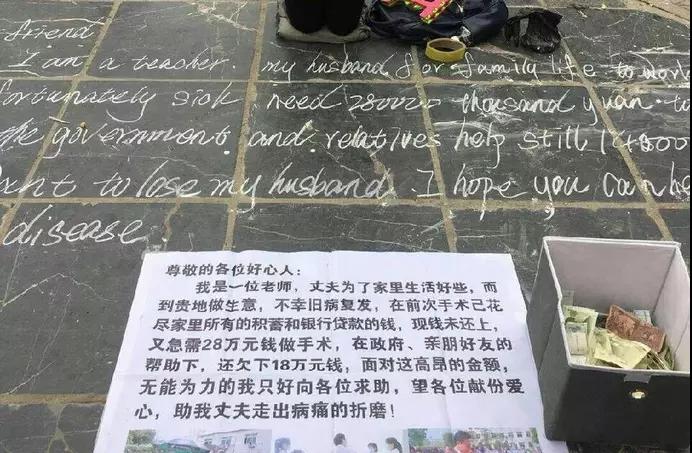 friend
I am a teacher. my husband for family life to work
fortunately sick. need 280000 thousand yuan to
the government and relatives help still 148000
want to lose my husband. I hope you can he
disease
尊敬的各位好心人：
我是一位老师，丈夫为了家里生活好些，而
到贵地做生意，不幸旧病复发，在前次手术已花
尽家里所有的积蓄和银行贷款的钱，现钱未还上，
又急需28万元钱做手术，在政府、亲朋好友的
帮助下，还欠下18万元钱，面对这高昂的金额，
无能为力的我只好向各位求助，望各位献份爱
心，助我丈夫走出病痛的折磨！